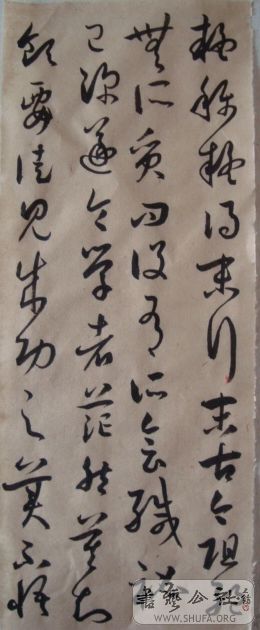 疑稱疑得末行末古今阻絕
無所質問設有所會緘秘
已深遂令學者茫然莫知
領要徒見成功之美不悟
書藝公社
WWW.SHUFA.ORG